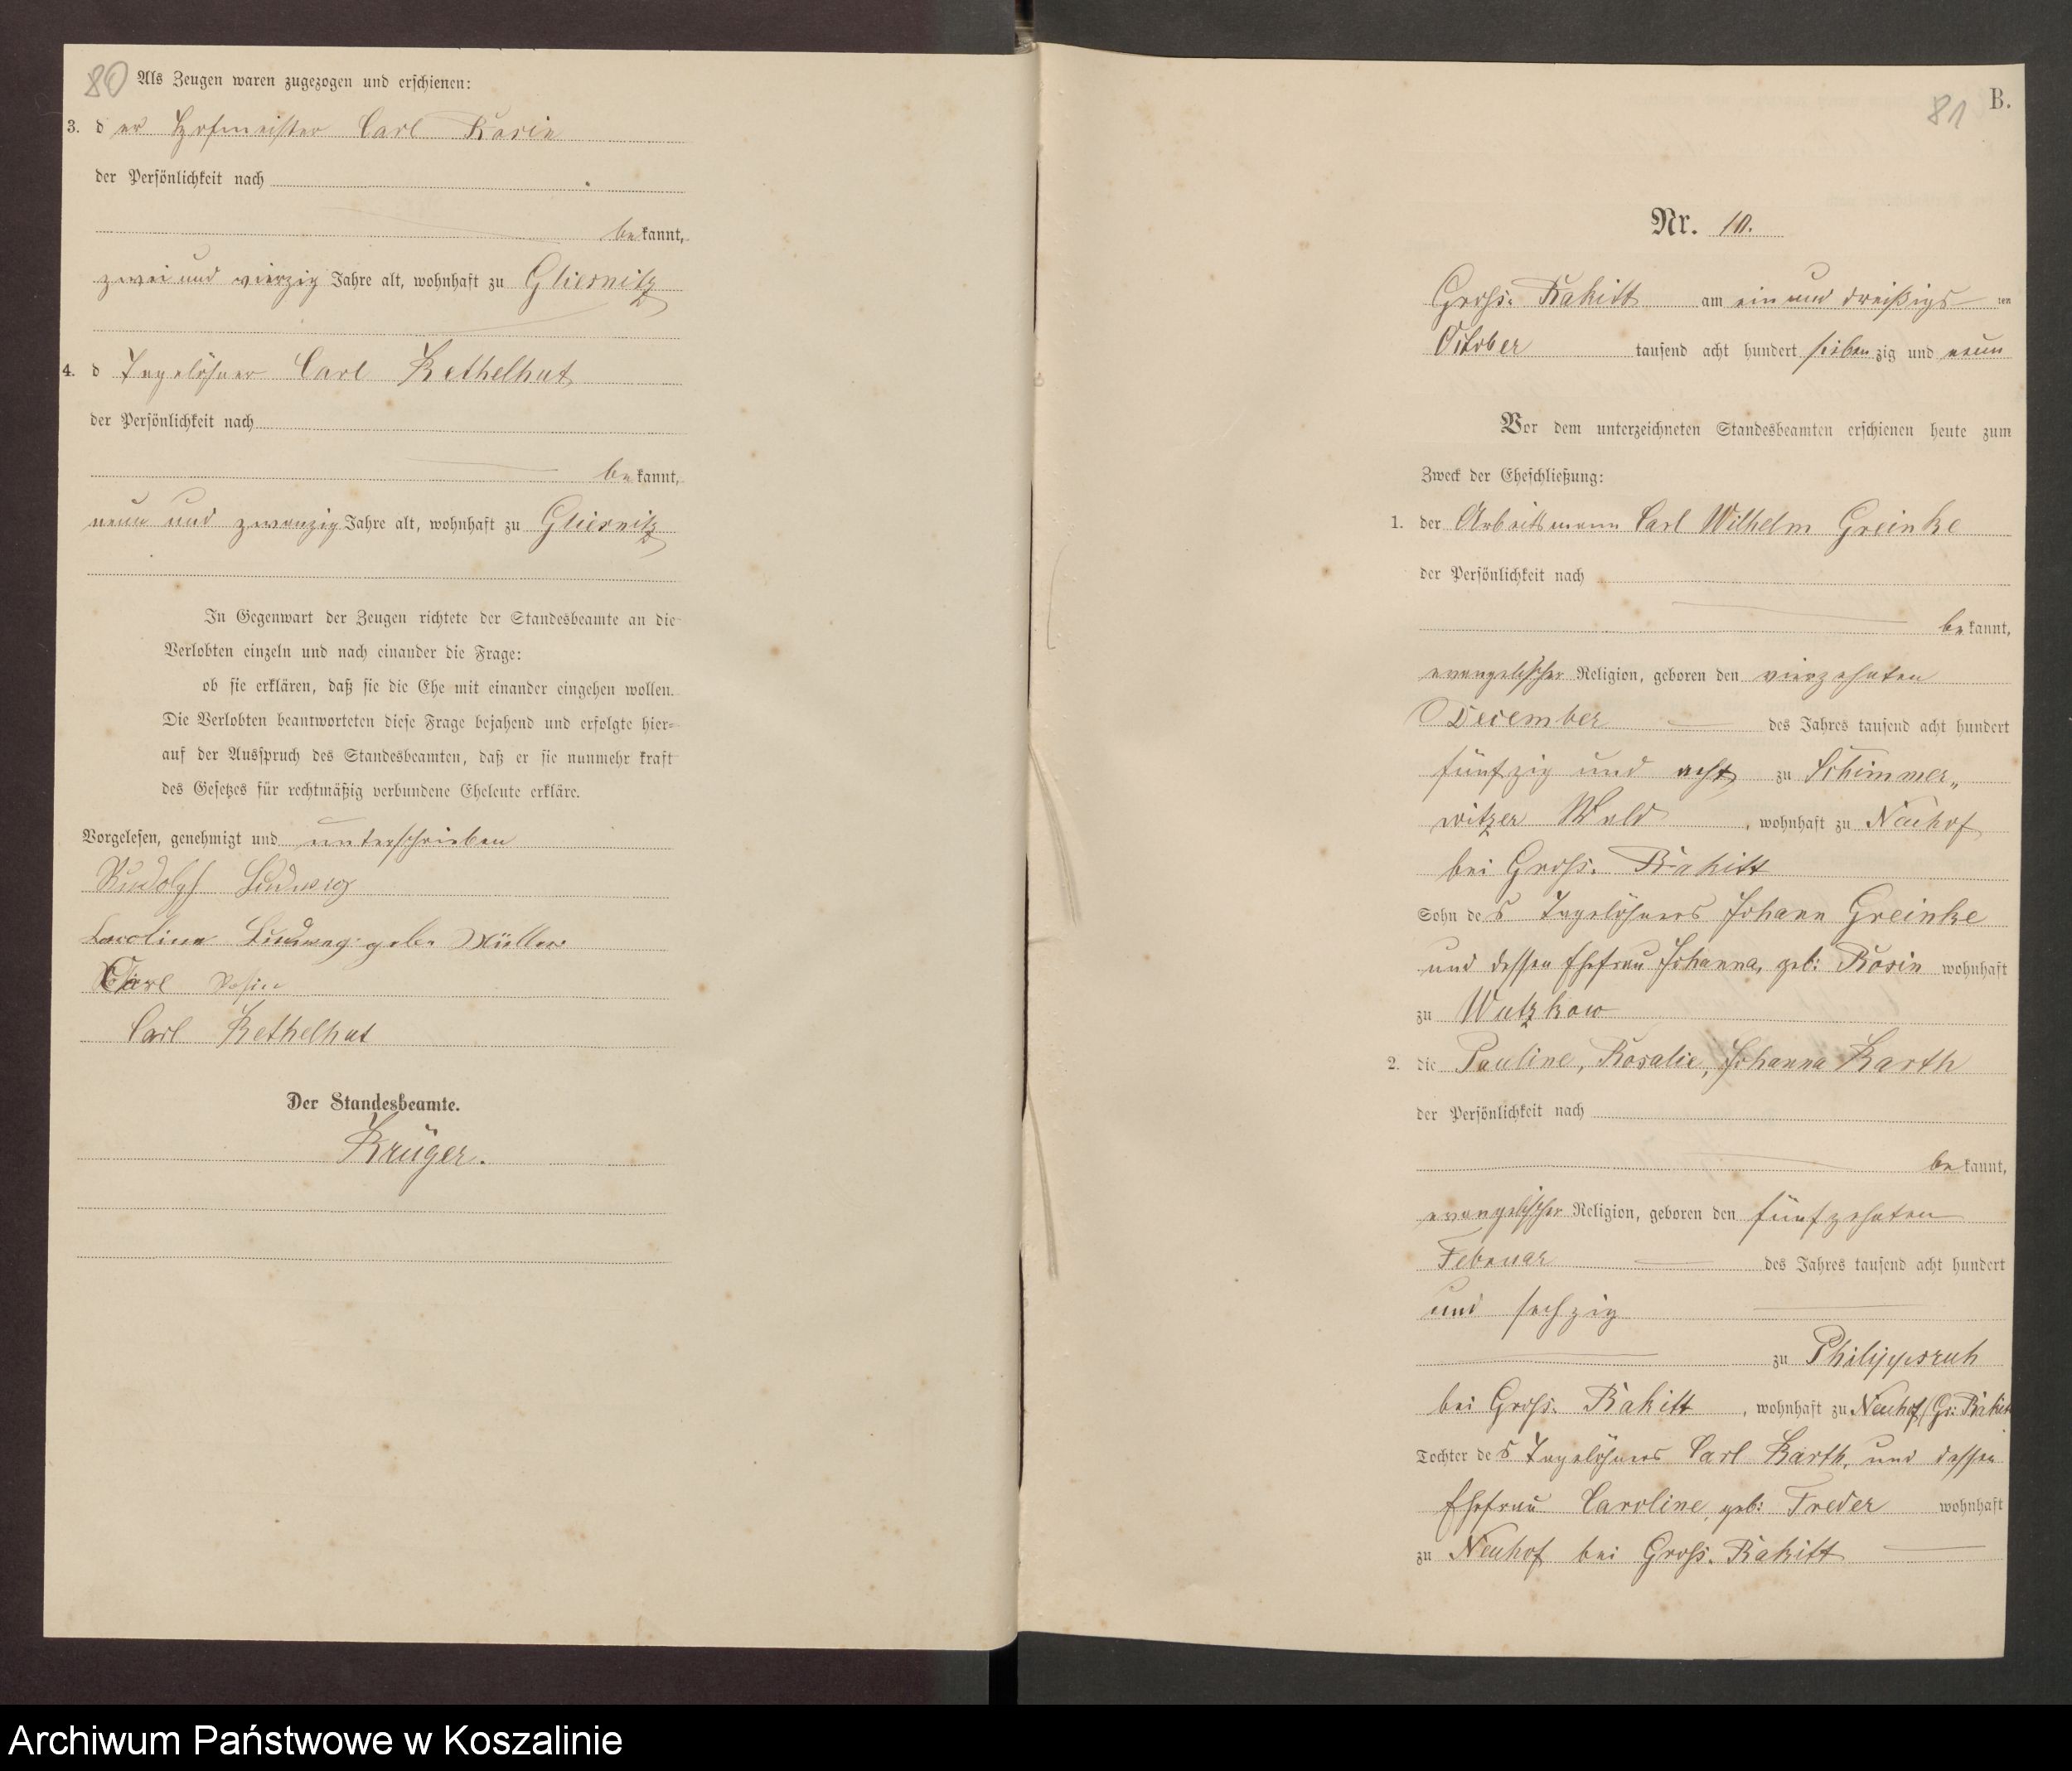 80 Als Zeugen waren zugezogen und erschienen:
3. der Hofmeister Carl Rosin
der Persönlichkeit nach
bekannt,
zwei und vierzig Jahre alt, wohnhaft zu Gliesnitz
4. d Tagelöhner Carl Kethelhut
der Persönlichkeit nach
bekannt,
neun und zwanzig Jahre alt, wohnhaft zu Gliesnitz
In Gegenwart der Zeugen richtete der Standesbeamte an die
Verlobten einzeln und nach einander die Frage:
ob sie erklären, daß sie die Ehe mit einander eingehen wollen.
Die Verlobten beantworteten diese Frage bejahend und erfolgte hier-
auf der Ausspruch des Standesbeamten, daß er sie nunmehr kraft
des Gesetzes für rechtmäßig verbundene Eheleute erkläre.
Vorgelesen, genehmigt und unterschrieben
Rudolph Ludwig
Caroline Ludwig geb. Müller
Carl Rosin
Carl Kethelhut
Der Standesbeamte.
Krüger.
81 B.
Nr. 10.
Gross. Rakitt am ein und dreißigs ten
October tausend acht hundert siebenzig und neun
Vor dem unterzeichneten Standesbeamten erschienen heute zum
Zweck der Eheschließung:
1. der Arbeitsmann Carl Wilhelm Greinke
der Persönlichkeit nach
bekannt,
evangelischer Religion, geboren den vierzehnten
December des Jahres tausend acht hundert
fünfzig und acht zu Schimmer„
witzer Wald, wohnhaft zu Neuhof
bei Gross. Rakitt
Sohn des Tagelöhners Johann Greinke
und dessen Ehefrau Johanna, geb: Rosin wohnhaft
zu Wutzkow
2. die Pauline, Rosalie, Johanna Karth
der Persönlichkeit nach
bekannt,
evangelischer Religion, geboren den fünfzehnten
Februar des Jahres tausend acht hundert
und sechzig
zu Philippsruh
bei Gross. Rakitt, wohnhaft zu Neuhof/Gr: Rakitt
Tochter des Tagelöhners Carl Karth, und dessen
Ehefrau Caroline, geb: Treder wohnhaft
zu Neuhof bei Gross. Rakitt
Archiwum Państwowe w Koszalinie